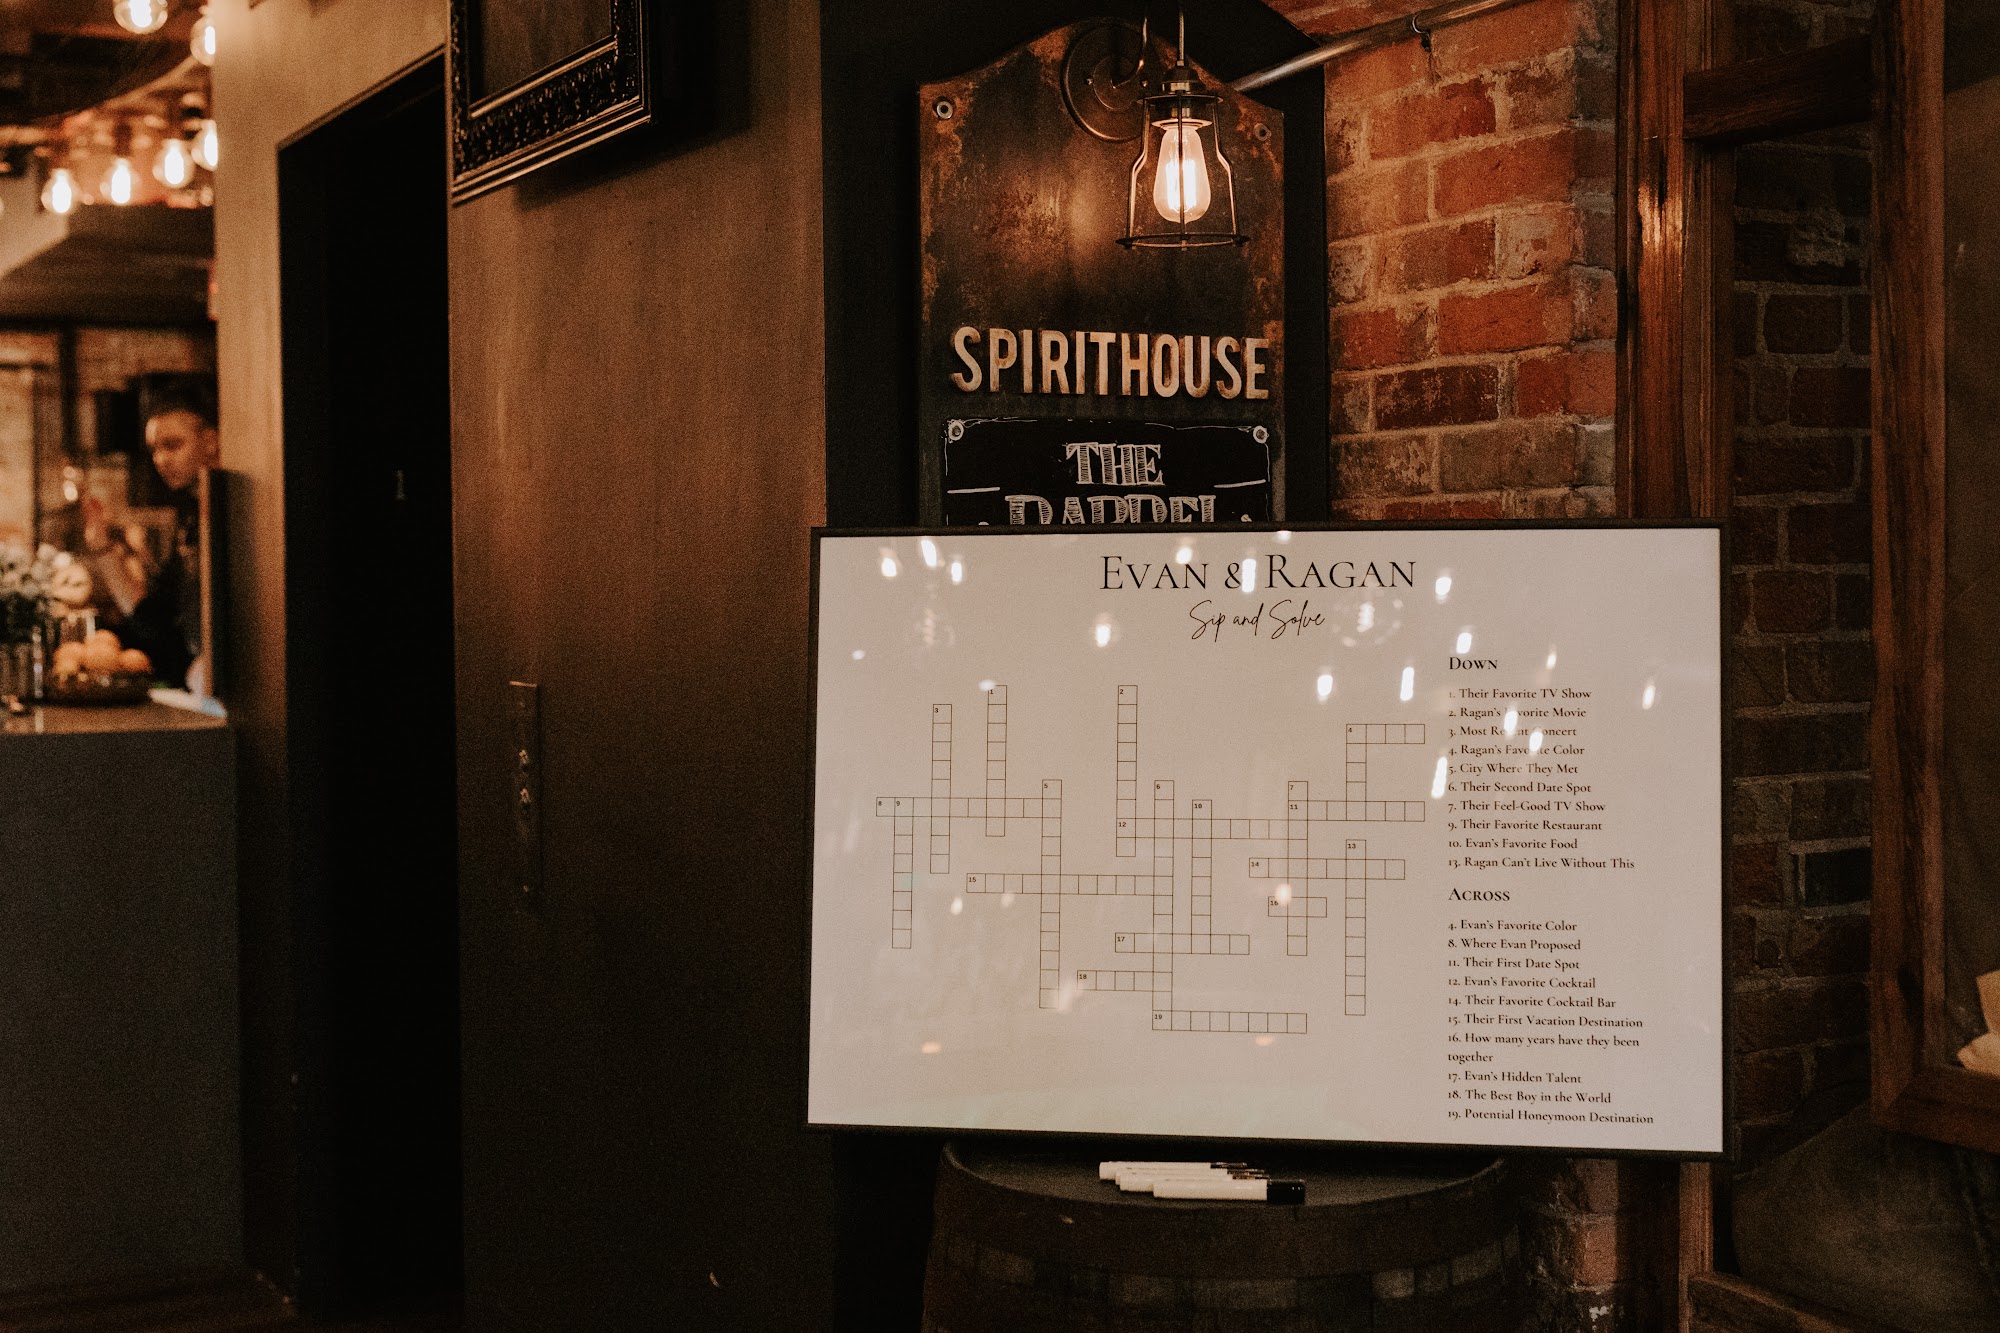 SPIRITHOUSE
THE
BARREL
EVAN & RAGAN
Sip and Solve
DOWN
1. Their Favorite TV Show
2. Ragan's Favorite Movie
3. Most Recent Concert
4. Ragan's Favorite Color
5. City Where They Met
6. Their Second Date Spot
7. Their Feel-Good TV Show
9. Their Favorite Restaurant
10. Evan's Favorite Food
13. Ragan Can't Live Without This
ACROSS
4. Evan's Favorite Color
8. Where Evan Proposed
11. Their First Date Spot
12. Evan's Favorite Cocktail
14. Their Favorite Cocktail Bar
15. Their First Vacation Destination
16. How many years have they been
together
17. Evan's Hidden Talent
18. The Best Boy in the World
19. Potential Honeymoon Destination
1
2
3
4
5
6
7
8 9
10
11
12
13
14
15
16
17
18
19